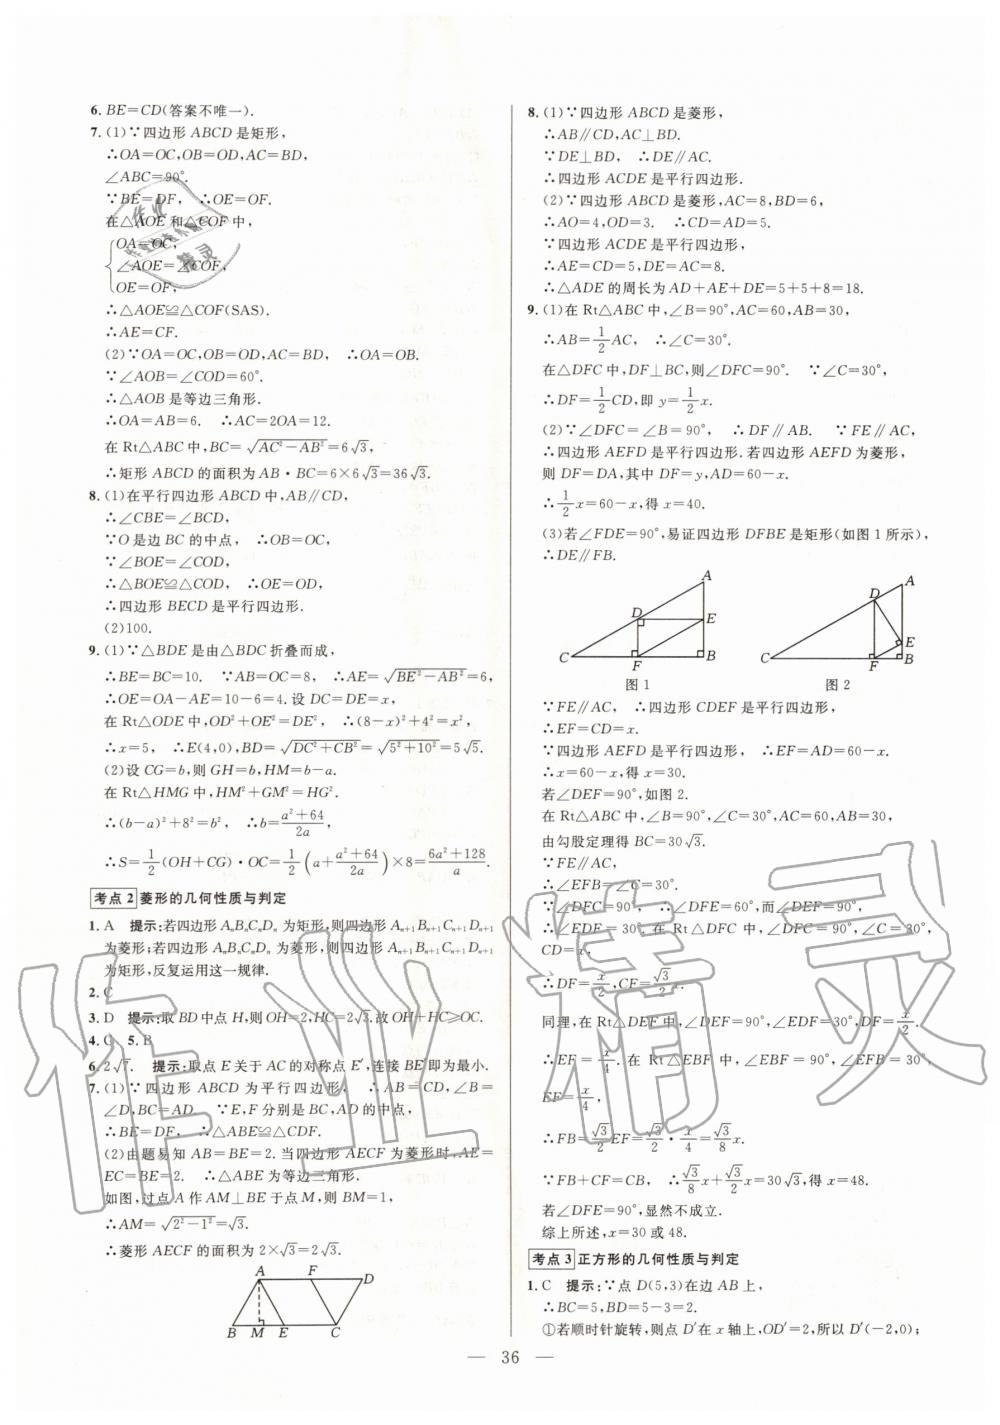 6. BE=CD(答案不唯一).
7. (1)∵四边形 ABCD 是矩形,
∴OA=OC,OB=OD,AC=BD,
∠ABC=90°.
∵BE=DF, ∴OE=OF.
在△AOE 和△COF 中,
OA=OC,
∠AOE=∠COF,
OE=OF,
∴△AOE≌△COF(SAS).
∴AE=CF.
(2)∵OA=OC,OB=OD,AC=BD, ∴OA=OB.
∵∠AOB=∠COD=60°.
∴△AOB 是等边三角形.
∴OA=AB=6. ∴AC=2OA=12.
在 Rt△ABC 中,BC=√(AC²-AB²)=6√3,
∴矩形 ABCD 的面积为 AB·BC=6×6√3=36√3.
8. (1)在平行四边形 ABCD 中,AB∥CD,
∴∠CBE=∠BCD,
∵O 是边 BC 的中点, ∴OB=OC,
∵∠BOE=∠COD,
∴△BOE≌△COD, ∴OE=OD,
∴四边形 BECD 是平行四边形.
(2)100.
9. (1)∵△BDE 是由△BDC 折叠而成,
∴BE=BC=10. ∵AB=OC=8, ∴AE=√(BE²-AB²)=6,
∴OE=OA-AE=10-6=4. 设 DC=DE=x,
在 Rt△ODE 中,OD²+OE²=DE², ∴(8-x)²+4²=x²,
∴x=5, ∴E(4,0),BD=√(DC²+CB²)=√(5²+10²)=5√5.
(2)设 CG=b,则 GH=b,HM=b-a.
在 Rt△HMG 中,HM²+GM²=HG²,
∴(b-a)²+8²=b², ∴b=(a²+64)/2a,
∴S=1/2(OH+CG)·OC=1/2(a+(a²+64)/2a)×8=(6a²+128)/a.
考点 2 菱形的几何性质与判定
1. A 提示:若四边形 AₙBₙCₙDₙ 为矩形,则四边形 Aₙ₊₁Bₙ₊₁Cₙ₊₁Dₙ₊₁
为菱形;若四边形 AₙBₙCₙDₙ 为菱形,则四边形 Aₙ₊₁Bₙ₊₁Cₙ₊₁Dₙ₊₁
为矩形,反复运用这一规律.
2. C
3. D 提示:取 BD 中点 H,则 OH=2,HC=2√3.故 OH+HC≥OC.
4. C 5. B
6. 2√7. 提示:取点 E 关于 AC 的对称点 E′,连接 BE′即为最小.
7. (1)∵四边形 ABCD 为平行四边形, ∴AB=CD,∠B=
∠D,BC=AD. ∵E,F 分别是 BC,AD 的中点,
∴BE=DF, ∴△ABE≌△CDF.
(2)由题易知 AB=BE=2. 当四边形 AECF 为菱形时,AE=
EC=BE=2. ∴△ABE 为等边三角形.
如图,过点 A 作 AM⊥BE 于点 M,则 BM=1,
∴AM=√(2²-1²)=√3.
∴菱形 AECF 的面积为 2×√3=2√3.
A F D
B M E C
8. (1)∵四边形 ABCD 是菱形,
∴AB∥CD,AC⊥BD.
∵DE⊥BD, ∴DE∥AC.
∴四边形 ACDE 是平行四边形.
(2)∵四边形 ABCD 是菱形,AC=8,BD=6,
∴AO=4,OD=3. ∴CD=AD=5.
∵四边形 ACDE 是平行四边形,
∴AE=CD=5,DE=AC=8.
∴△ADE 的周长为 AD+AE+DE=5+5+8=18.
9. (1)在 Rt△ABC 中,∠B=90°,AC=60,AB=30,
∴AB=1/2AC, ∴∠C=30°.
在△DFC 中,DF⊥BC,则∠DFC=90°. ∵∠C=30°,
∴DF=1/2CD,即 y=1/2x.
(2)∵∠DFC=∠B=90°, ∴DF∥AB. ∵FE∥AC,
∴四边形 AEFD 是平行四边形. 若四边形 AEFD 为菱形,
则 DF=DA,其中 DF=y,AD=60-x.
∴1/2x=60-x,得 x=40.
(3)若∠FDE=90°,易证四边形 DFBE 是矩形(如图 1 所示),
∴DE∥FB.
A D E C F B
图 1
A D E C F B
图 2
∵FE∥AC, ∴四边形 CDEF 是平行四边形,
∴EF=CD=x.
∵四边形 AEFD 是平行四边形, ∴EF=AD=60-x.
∴x=60-x,得 x=30.
若∠DEF=90°,如图 2.
在 Rt△ABC 中,∠B=90°,∠C=30°,AC=60,AB=30,
由勾股定理得 BC=30√3.
∵FE∥AC,
∴∠EFB=∠C=30°,
∵∠DFC=90°, ∴∠DFE=60°,而∠DEF=90°,
∴∠EDF=30°. 在 Rt△DFC 中,∠DFC=90°,∠C=30°,
CD=x,
∴DF=x/2,CF=√3/2x.
同理,在 Rt△DEF 中,∠DEF=90°,∠EDF=30°,DF=x/2.
∴EF=x/4. 在 Rt△EBF 中,∠EBF=90°,∠EFB=30°,
EF=x/4,
∴FB=√3/2EF=√3/2·x/4=√3/8x.
∵FB+CF=CB, ∴√3/8x+√3/2x=30√3,得 x=48.
若∠DFE=90°,显然不成立.
综上所述,x=30 或 48.
考点 3 正方形的几何性质与判定
1. C 提示:∵点 D(5,3)在边 AB 上,
∴BC=5,BD=5-3=2.
①若顺时针旋转,则点 D′在 x 轴上,OD′=2,所以 D′(-2,0);
— 36 —
作业精灵